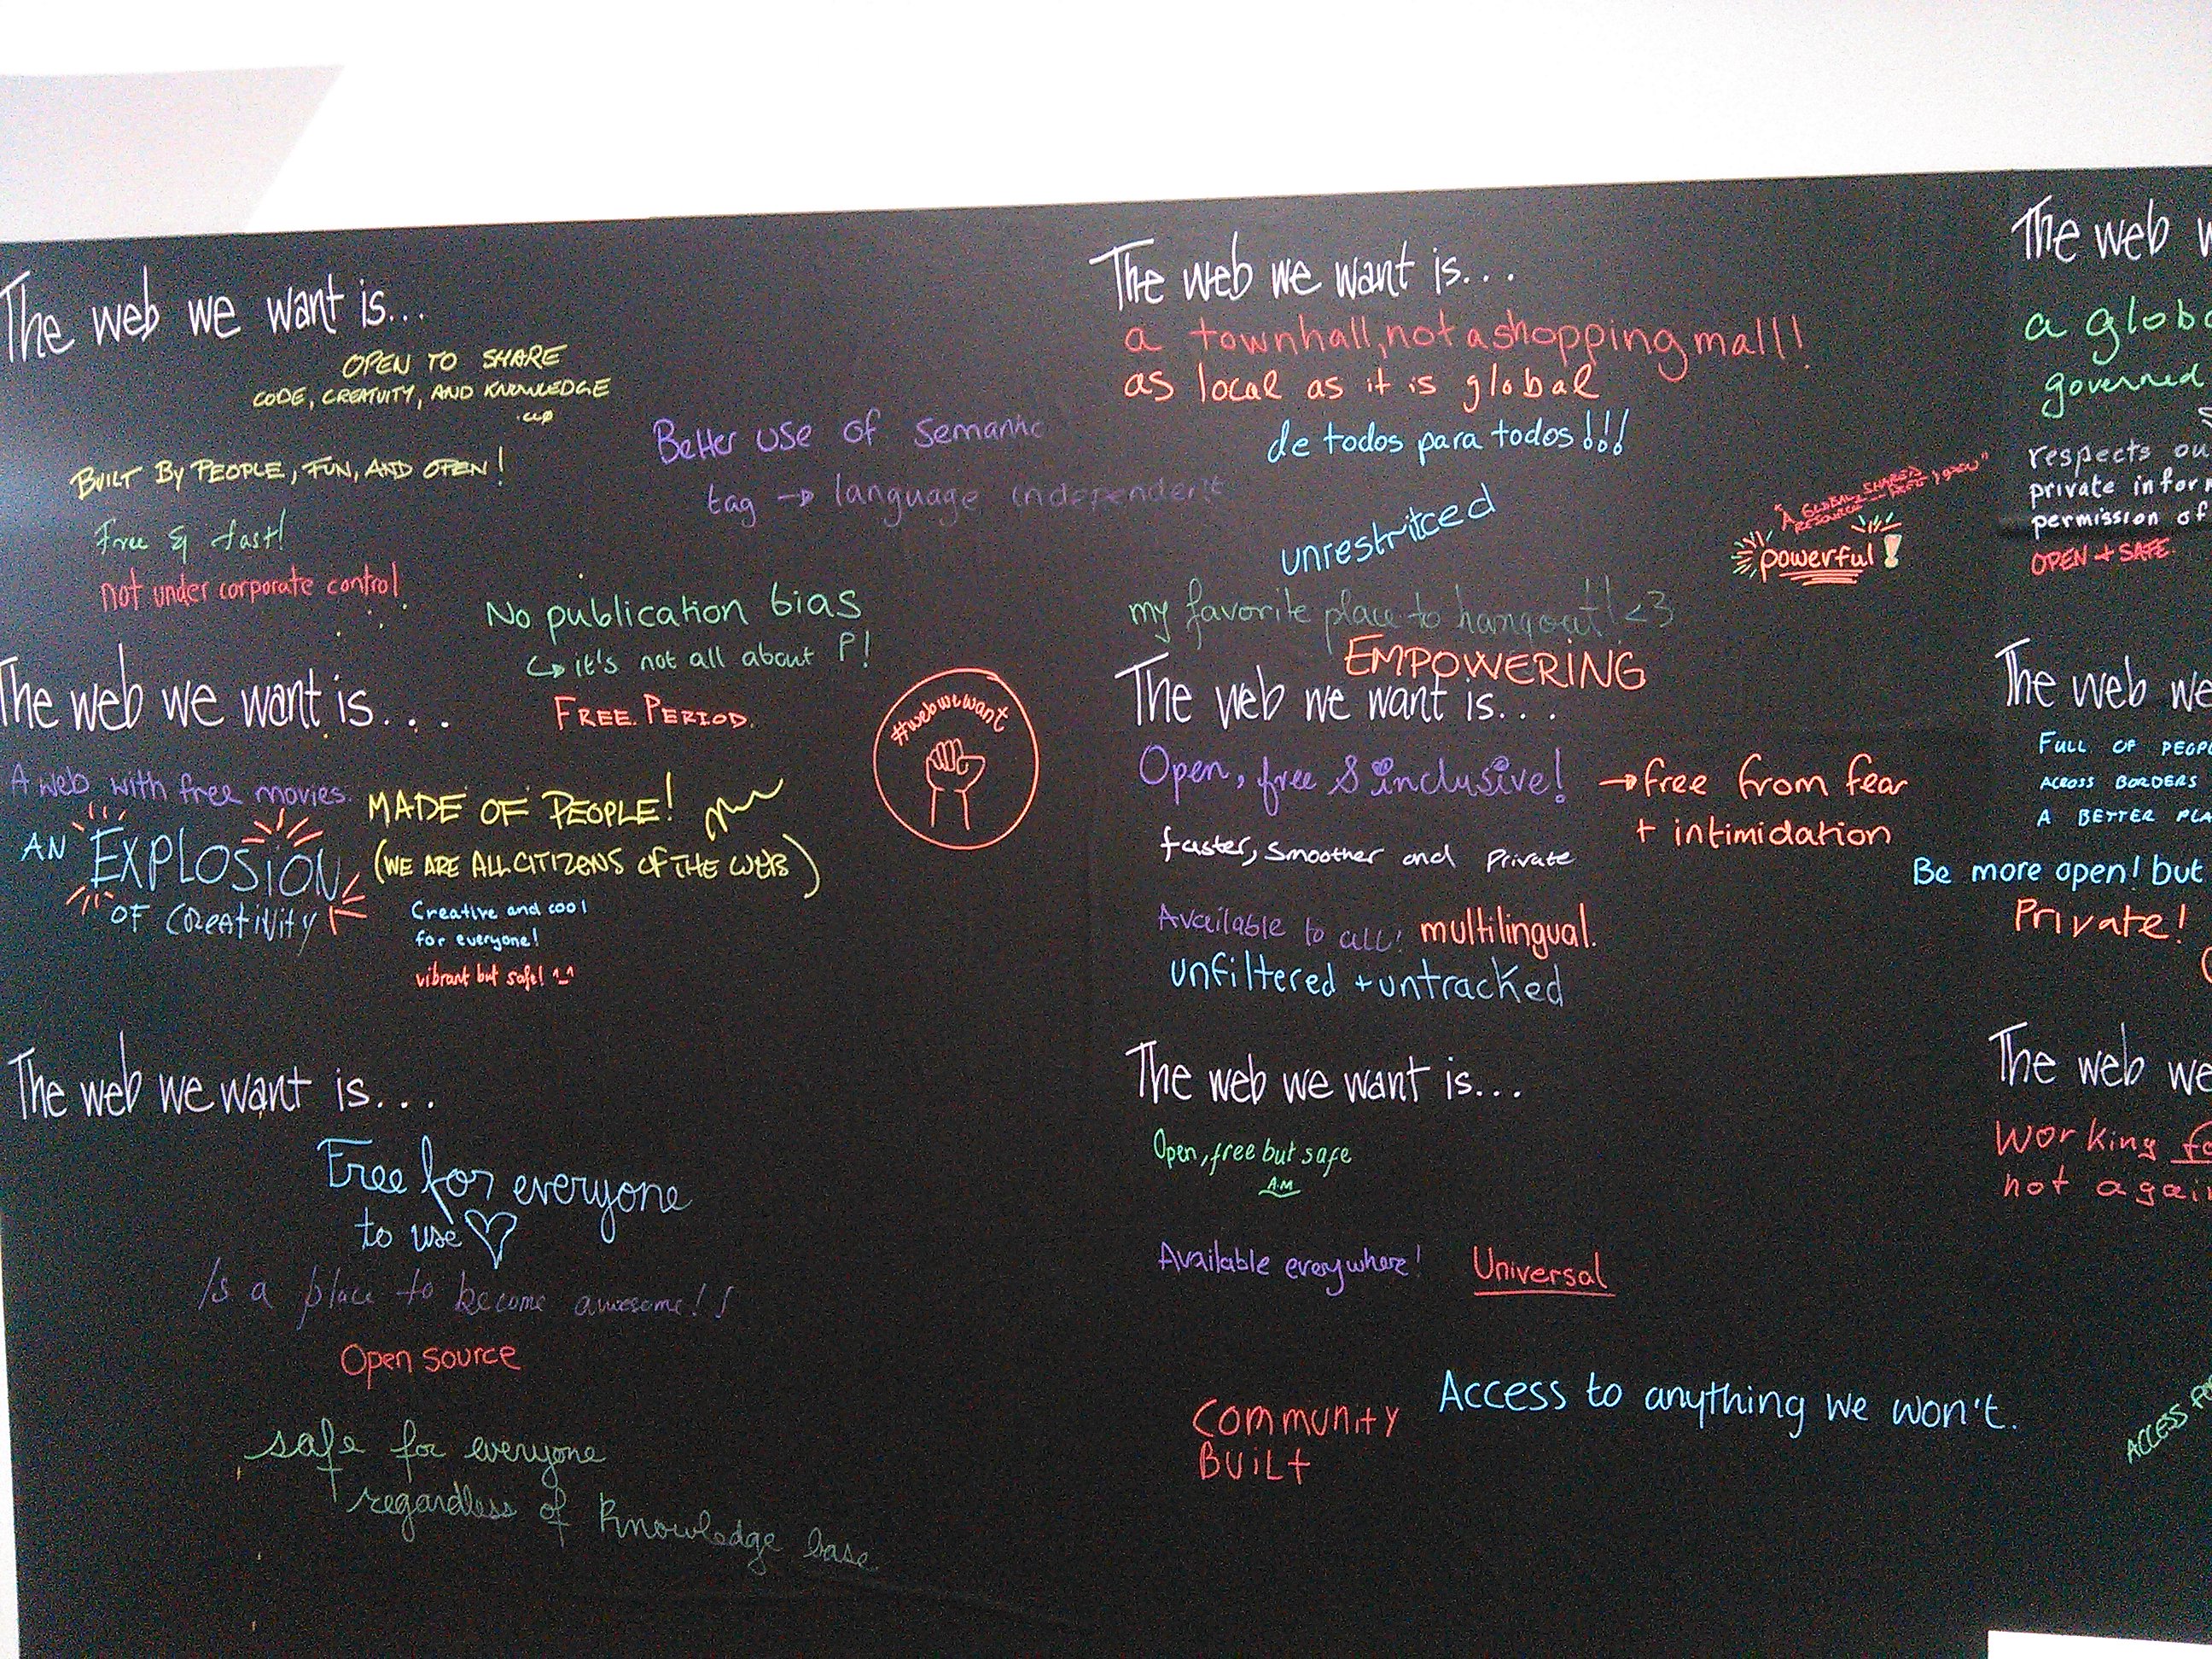 The web we want is...
OPEN TO SHARE
CODE, CREATIVITY, AND KNOWLEDGE
BUILT BY PEOPLE, FUN, AND OPEN!
Free & fast!
not under corporate control
Better use of semantic
tag → language independent
No publication bias
↳ it's not all about P!
FREE. PERIOD.
The web we want is...
A web with free movies.
AN EXPLOSION
OF CREATIVITY
MADE OF PEOPLE!
(WE ARE ALL CITIZENS OF THE WEB)
Creative and cool
for everyone!
vibrant but safe! ^_^
#webwewant
The web we want is...
Free for everyone
to use ♡
Is a place to become awesome!!
Open source
safe for everyone
regardless of knowledge base
The web we want is...
a townhall, not a shopping mall!
as local as it is global
de todos para todos!!!
unrestritced
"A GLOBAL SHARED
RESOURCE
powerful!
my favorite place to hangout! <3
EMPOWERING
The web we want is...
Open, free & inclusive!
→ free from fear
+ intimidation
faster, smoother and private
Available to all! multilingual.
unfiltered + untracked
The web we want is...
Open, free but safe
A.M
Available everywhere! Universal
COMMUNITY
BUILT
Access to anything we won't.
The web w
a globa
governed
respects ou
private infor
permission of
OPEN + SAFE
The web we
FULL OF PEOP
ACROSS BORDERS
A BETTER PLA
Be more open! but
Private!
The web we
Working fo
not agai
ACCESS FO